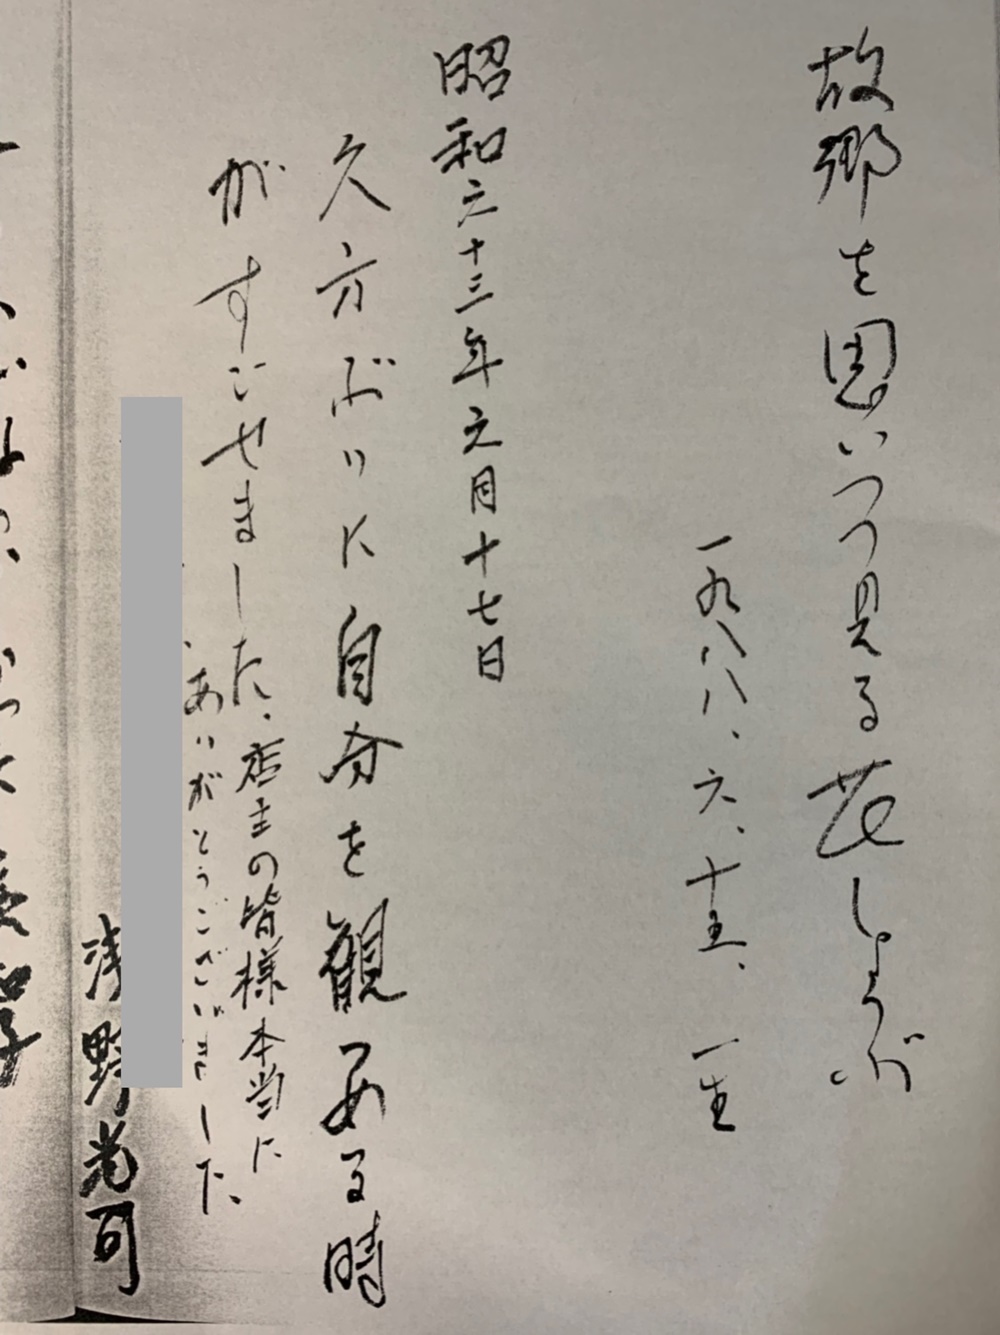 故郷を思いつつ見る花しょうぶ
一九八八、六、十五、一生
昭和六十三年元月十七日
久方ぶりに自分を観める時
がすごせました、店主の皆様本当に
ありがとうございました、
浅野光司